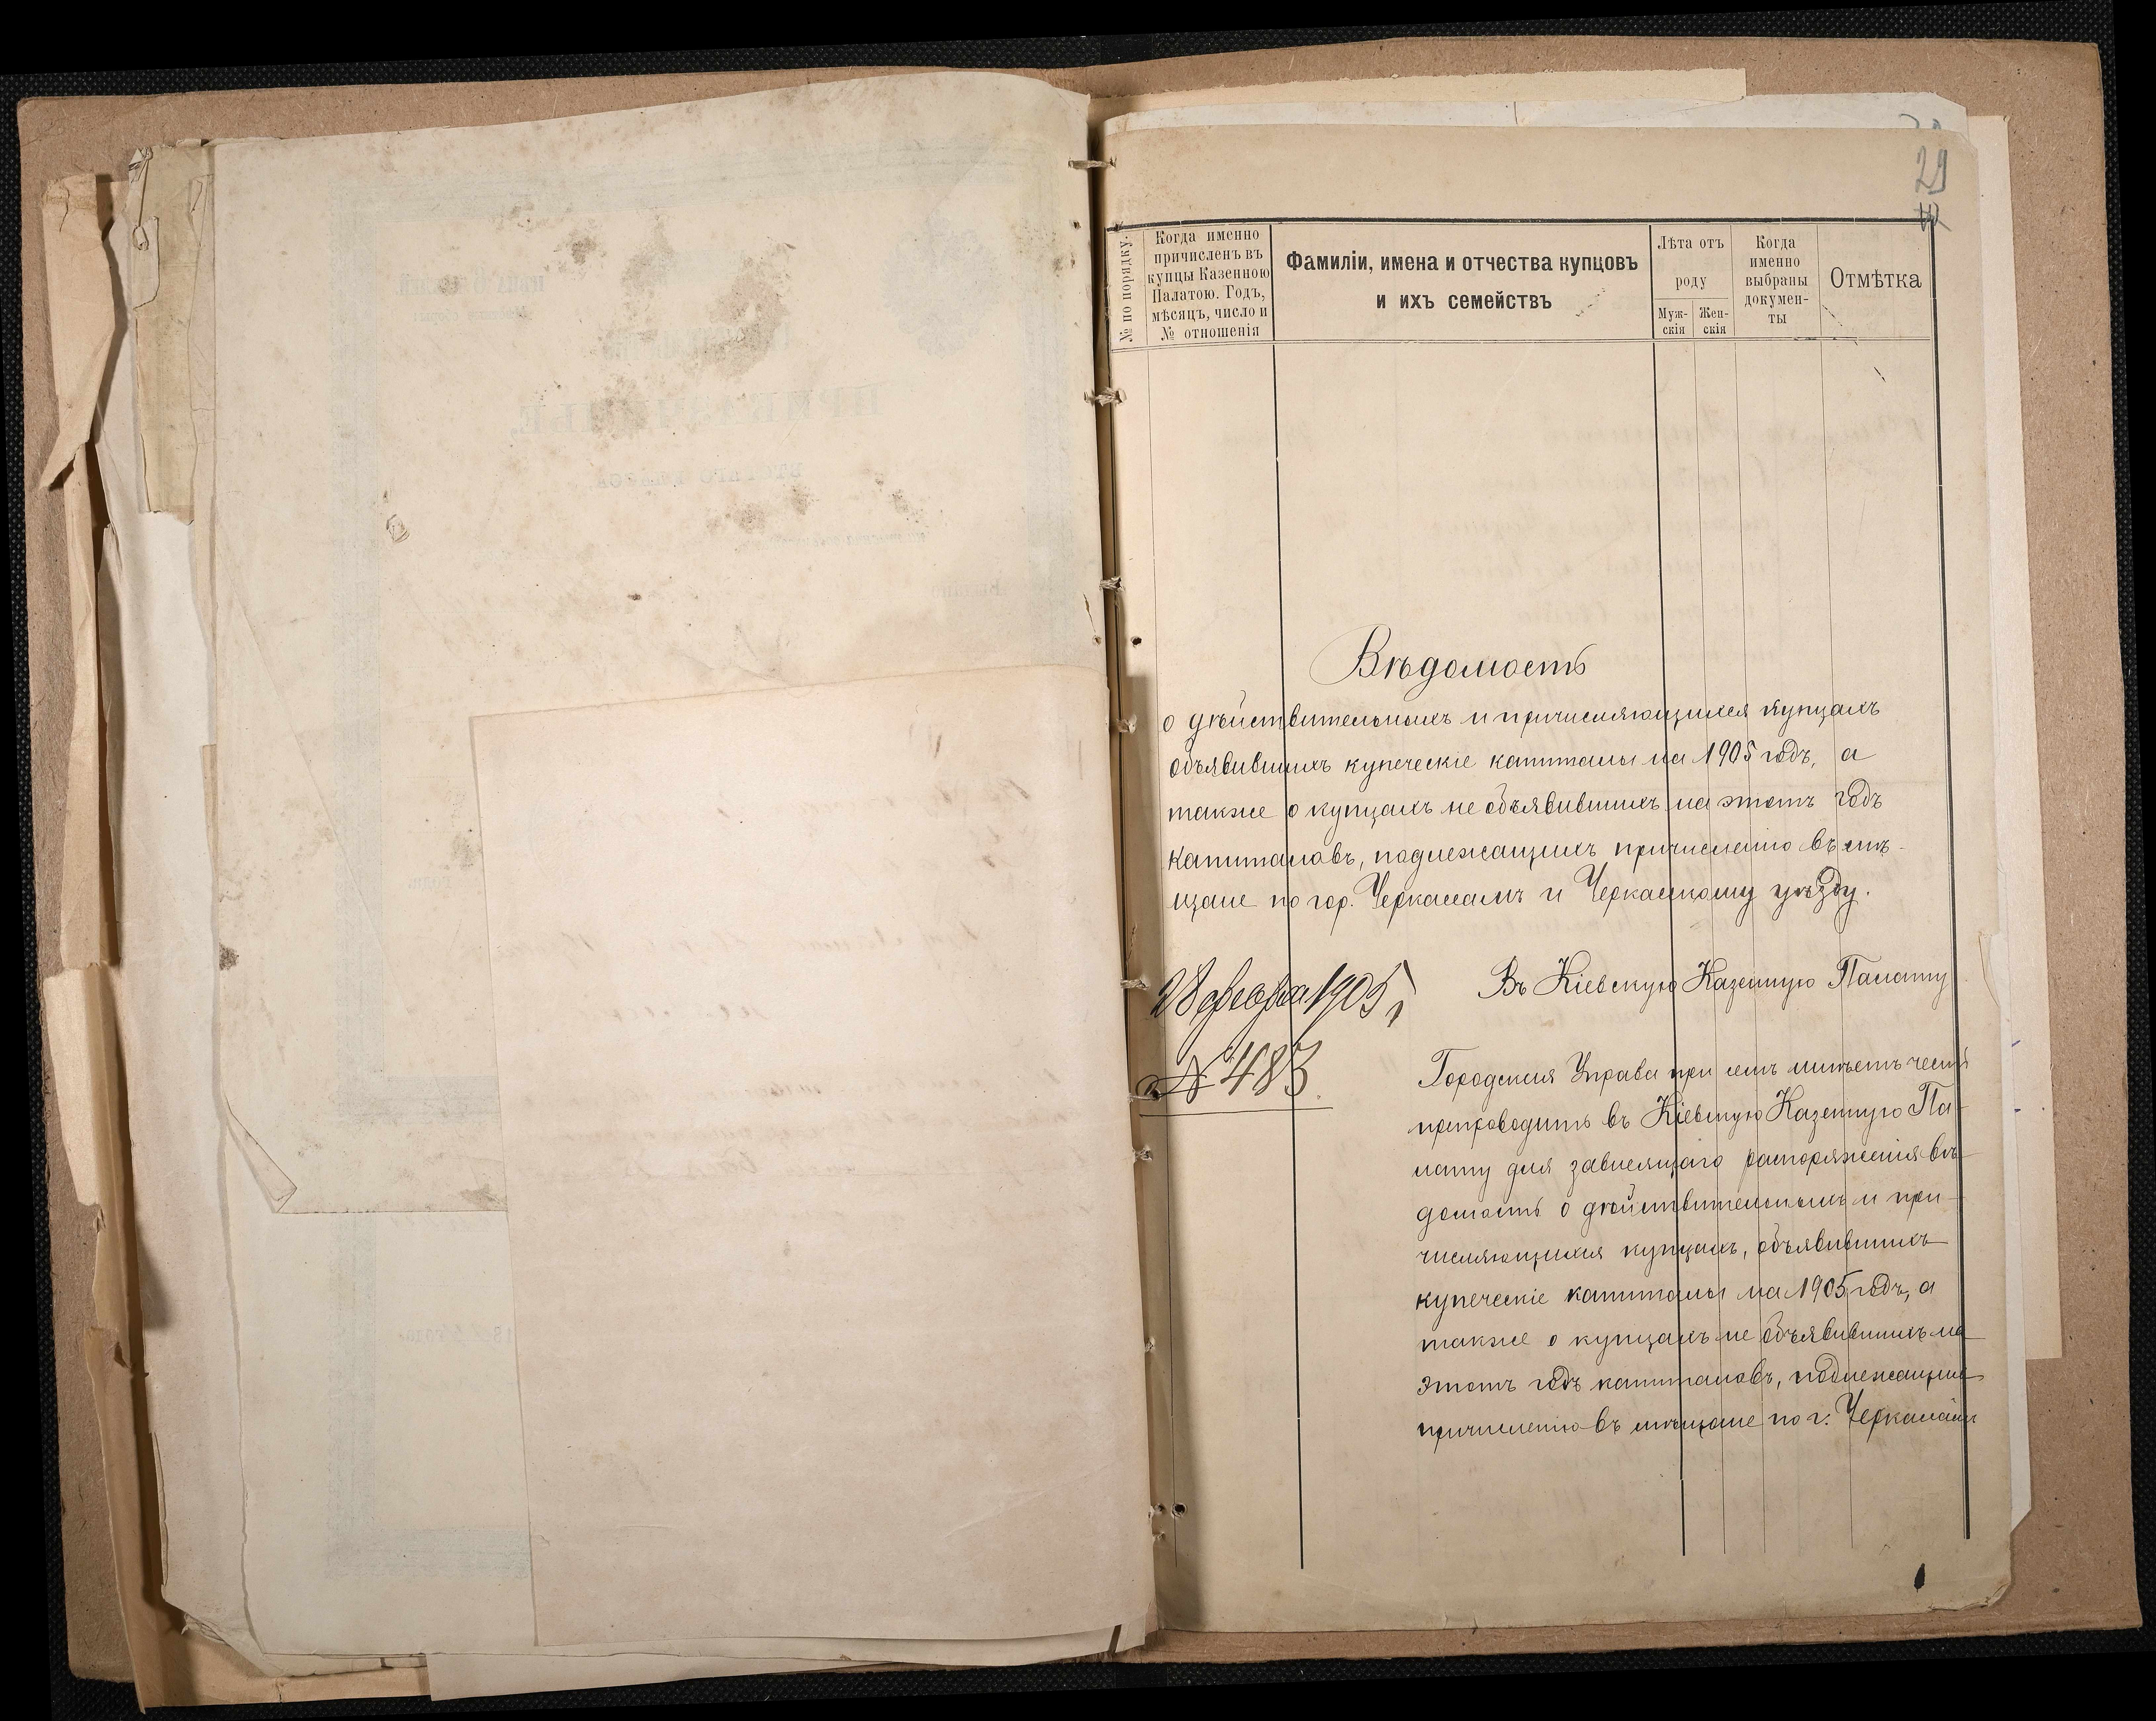 29
№ по порядку.
Когда именно
причисленъ въ
купцы Казенною
Палатою. Годъ,
мѣсяцъ, число и
№ отношенія
Фамиліи, имена и отчества купцовъ
и ихъ семействъ
Лѣта отъ
роду
Муж-
скія
Жен-
скія
Когда
именно
выбраны
докумен-
ты
Отмѣтка
Вѣдомость
о дѣйствительныхъ и причисляющихся купцахъ
объявившихъ купеческіе капиталы на 1905 годъ, а
также о купцахъ не объявившихъ на этотъ годъ
капиталовъ, подлежащихъ причисленію въ мѣ-
щане по гор. Черкасамъ и Черкасскому уѣзду.
28 февраля 1905 г.
№ 483.
Въ Кіевскую Казенную Палату
Городская Управа при семъ имѣетъ честь
препроводить въ Кіевскую Казенную Па-
лату для зависящаго распоряженія вѣ-
домость о дѣйствительныхъ и при-
числяющихся купцахъ, объявившихъ
купеческіе капиталы на 1905 годъ, а
также о купцахъ не объявившихъ на
этотъ годъ капиталовъ, подлежащихъ
причисленію въ мѣщане по г. Черкасамъ